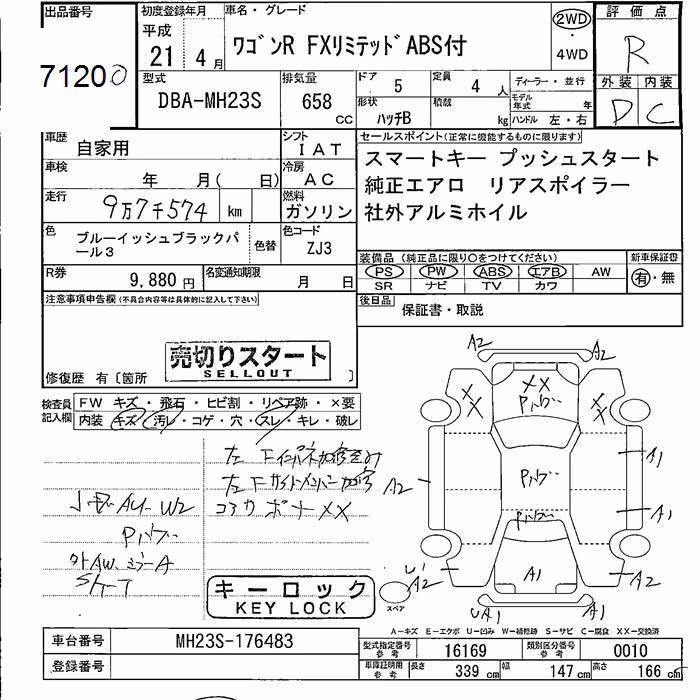 出品番号
71200
初度登録年月
平成
21 4月
車名・グレード
ワゴンR FXリミテッドABS付
2WD
4WD
評価点
R
外装 内装
D C
型式
DBA-MH23S
排気量
658 CC
ドア 5
定員 4人
形状 ハッチB
積載 kg
ディーラー・並行
モデル年式 年
ハンドル 左・右
車歴 自家用
シフト IAT
車検 年 月( 日)
冷房 AC
走行 9万7千574 km
燃料 ガソリン
色 ブルーイッシュブラックパール3
色替
色コード ZJ3
R券 9,880円
名変通知期限 月 日
セールスポイント(正常に機能するものに限ります)
スマートキー プッシュスタート
純正エアロ リアスポイラー
社外アルミホイル
装備品(純正品に限り○をつけてください)
新車保証書
PS PW ABS エアB AW
有・無
SR ナビ TV カワ
後日品
保証書・取説
注意事項申告欄(不具合内容等は具体的に記入して下さい)
売切りスタート
SELLOUT
修復歴 有〔箇所 〕
検査員記入欄
FW キズ・飛石・ヒビ割・リペア跡・×要
内装 キズ・汚レ・コゲ・穴・スレ・キレ・破レ
コアカ ボナ XX
W2
キーロック
KEY LOCK
A2
A2
XX
Pハゲ
A2
Pハゲ
A1
A1
Pハゲ
A1
A2
A2
UA1
A1
スペア
A-キズ E-エクボ U-凹み W-補修跡 S-サビ C-腐食 XX-交換済
車台番号 MH23S-176483
登録番号
型式指定番号 参考 16169
類別区分番号 参考 0010
車庫証明用 参考 長さ 339cm 幅 147cm 高さ 166cm